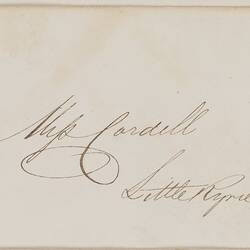 Miss Cordell
Little Ryrie